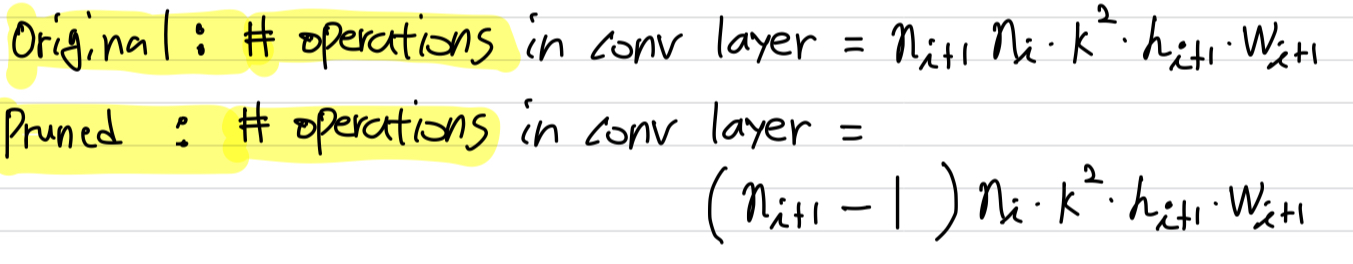 Original : # operations in conv layer = n_{i+1} n_i · k² · h_{i+1} · w_{i+1}
Pruned : # operations in conv layer =
(n_{i+1} - 1) n_i · k² · h_{i+1} · w_{i+1}